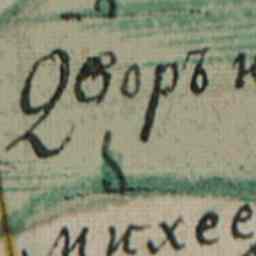 Дворъ н
михее